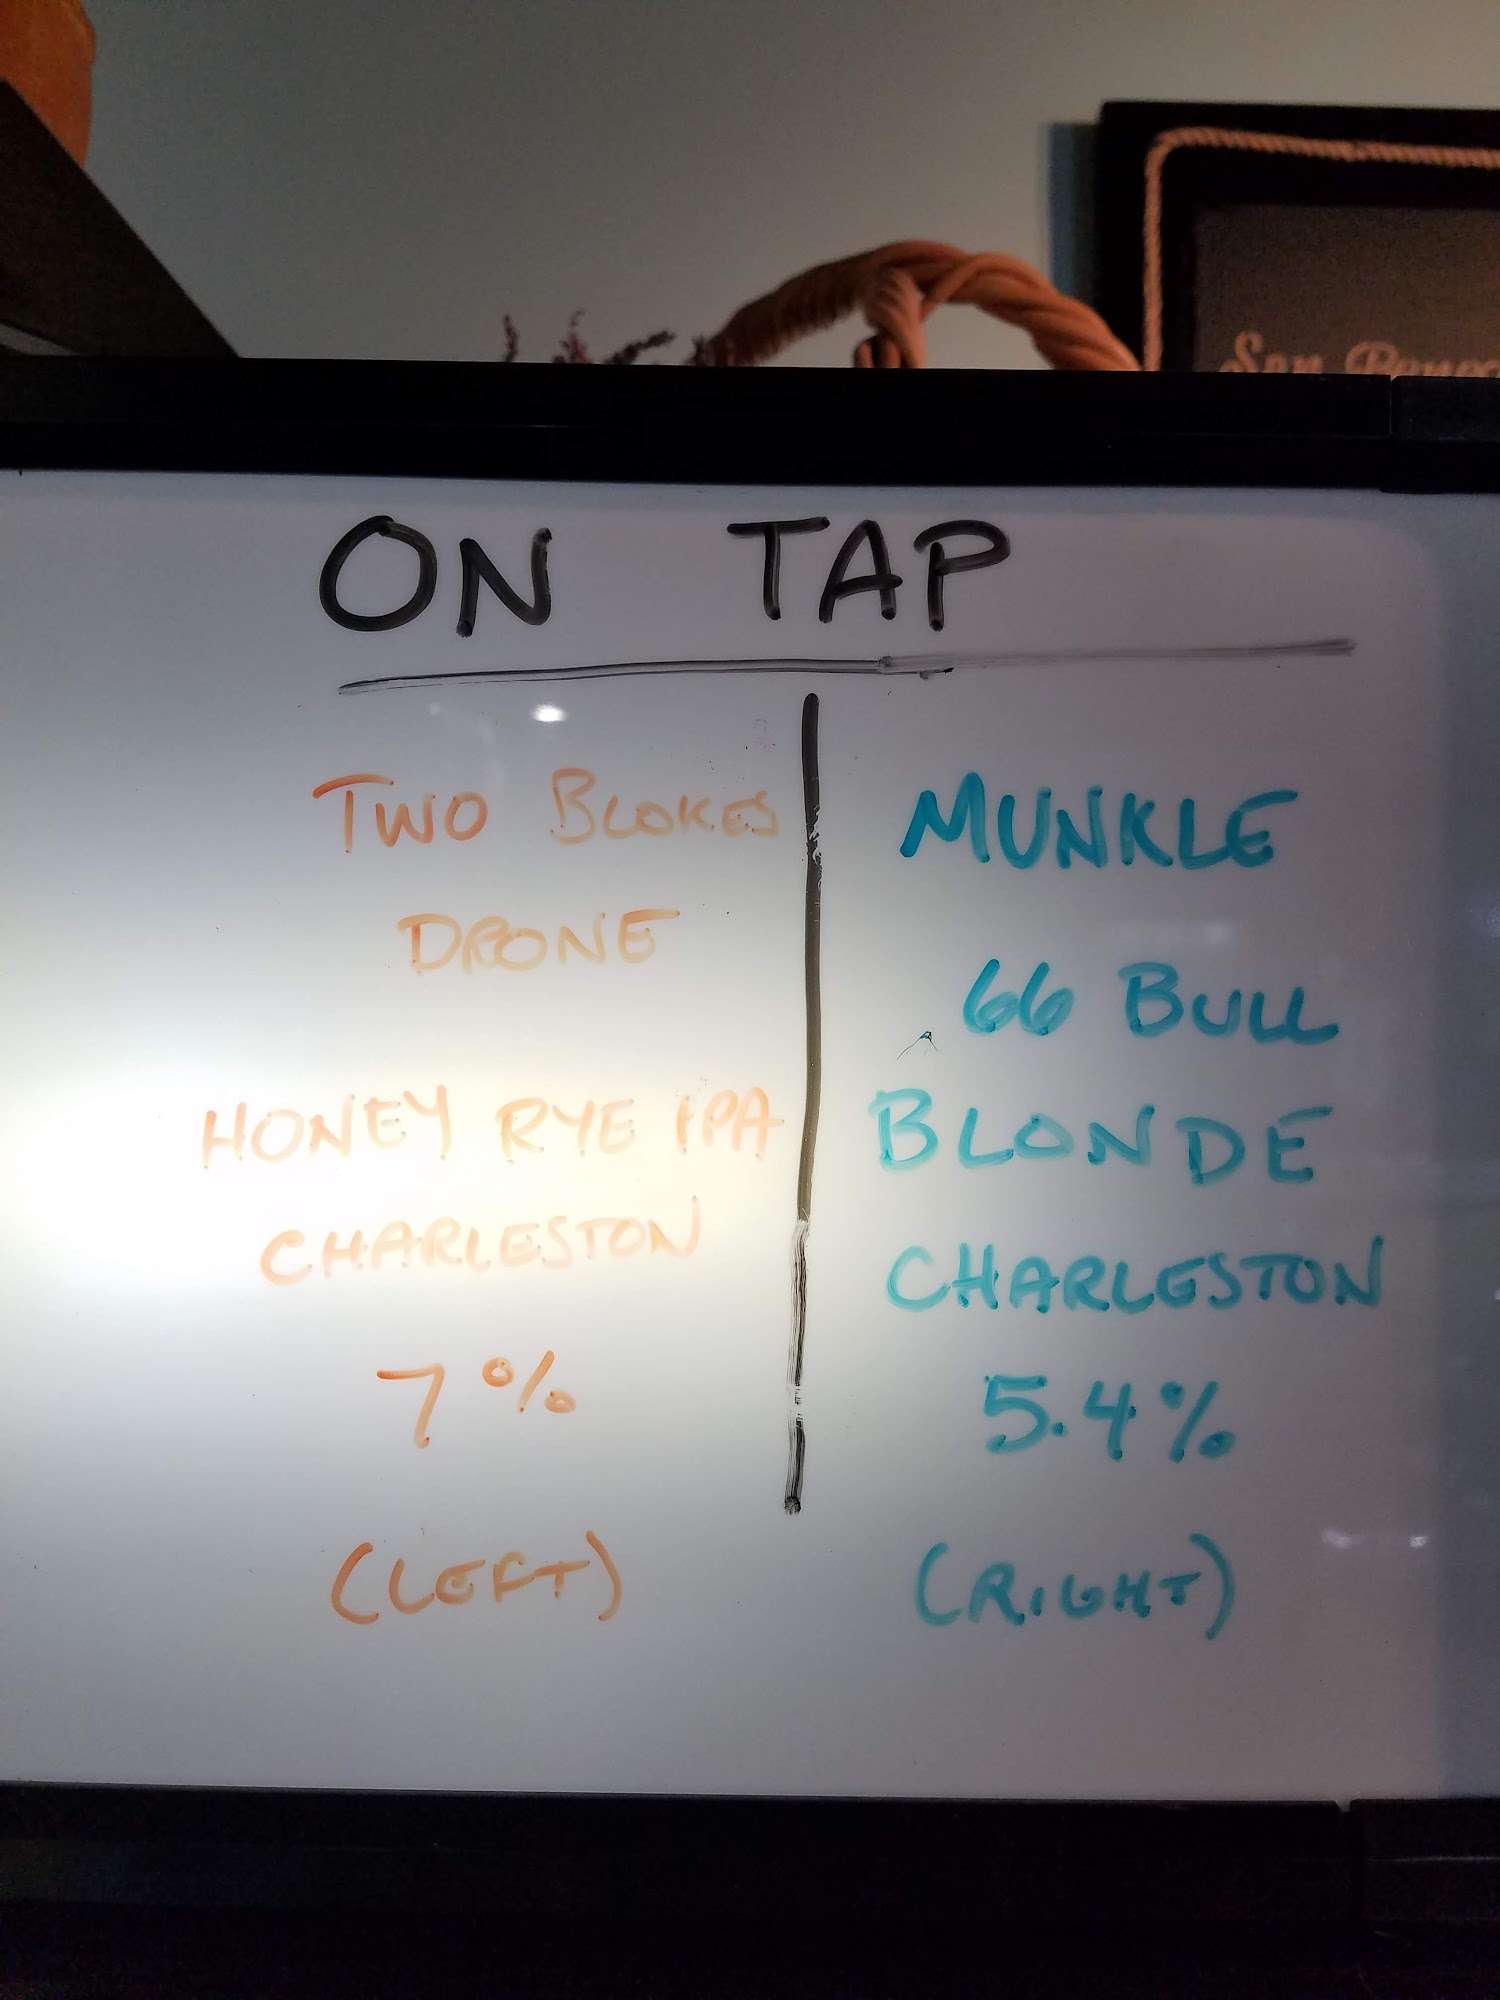 San
ON TAP
TWO BLOKES
DRONE
HONEY RYE IPA
CHARLESTON
7%
(LEFT)
MUNKLE
66 BULL
BLONDE
CHARLESTON
5.4%
(RIGHT)